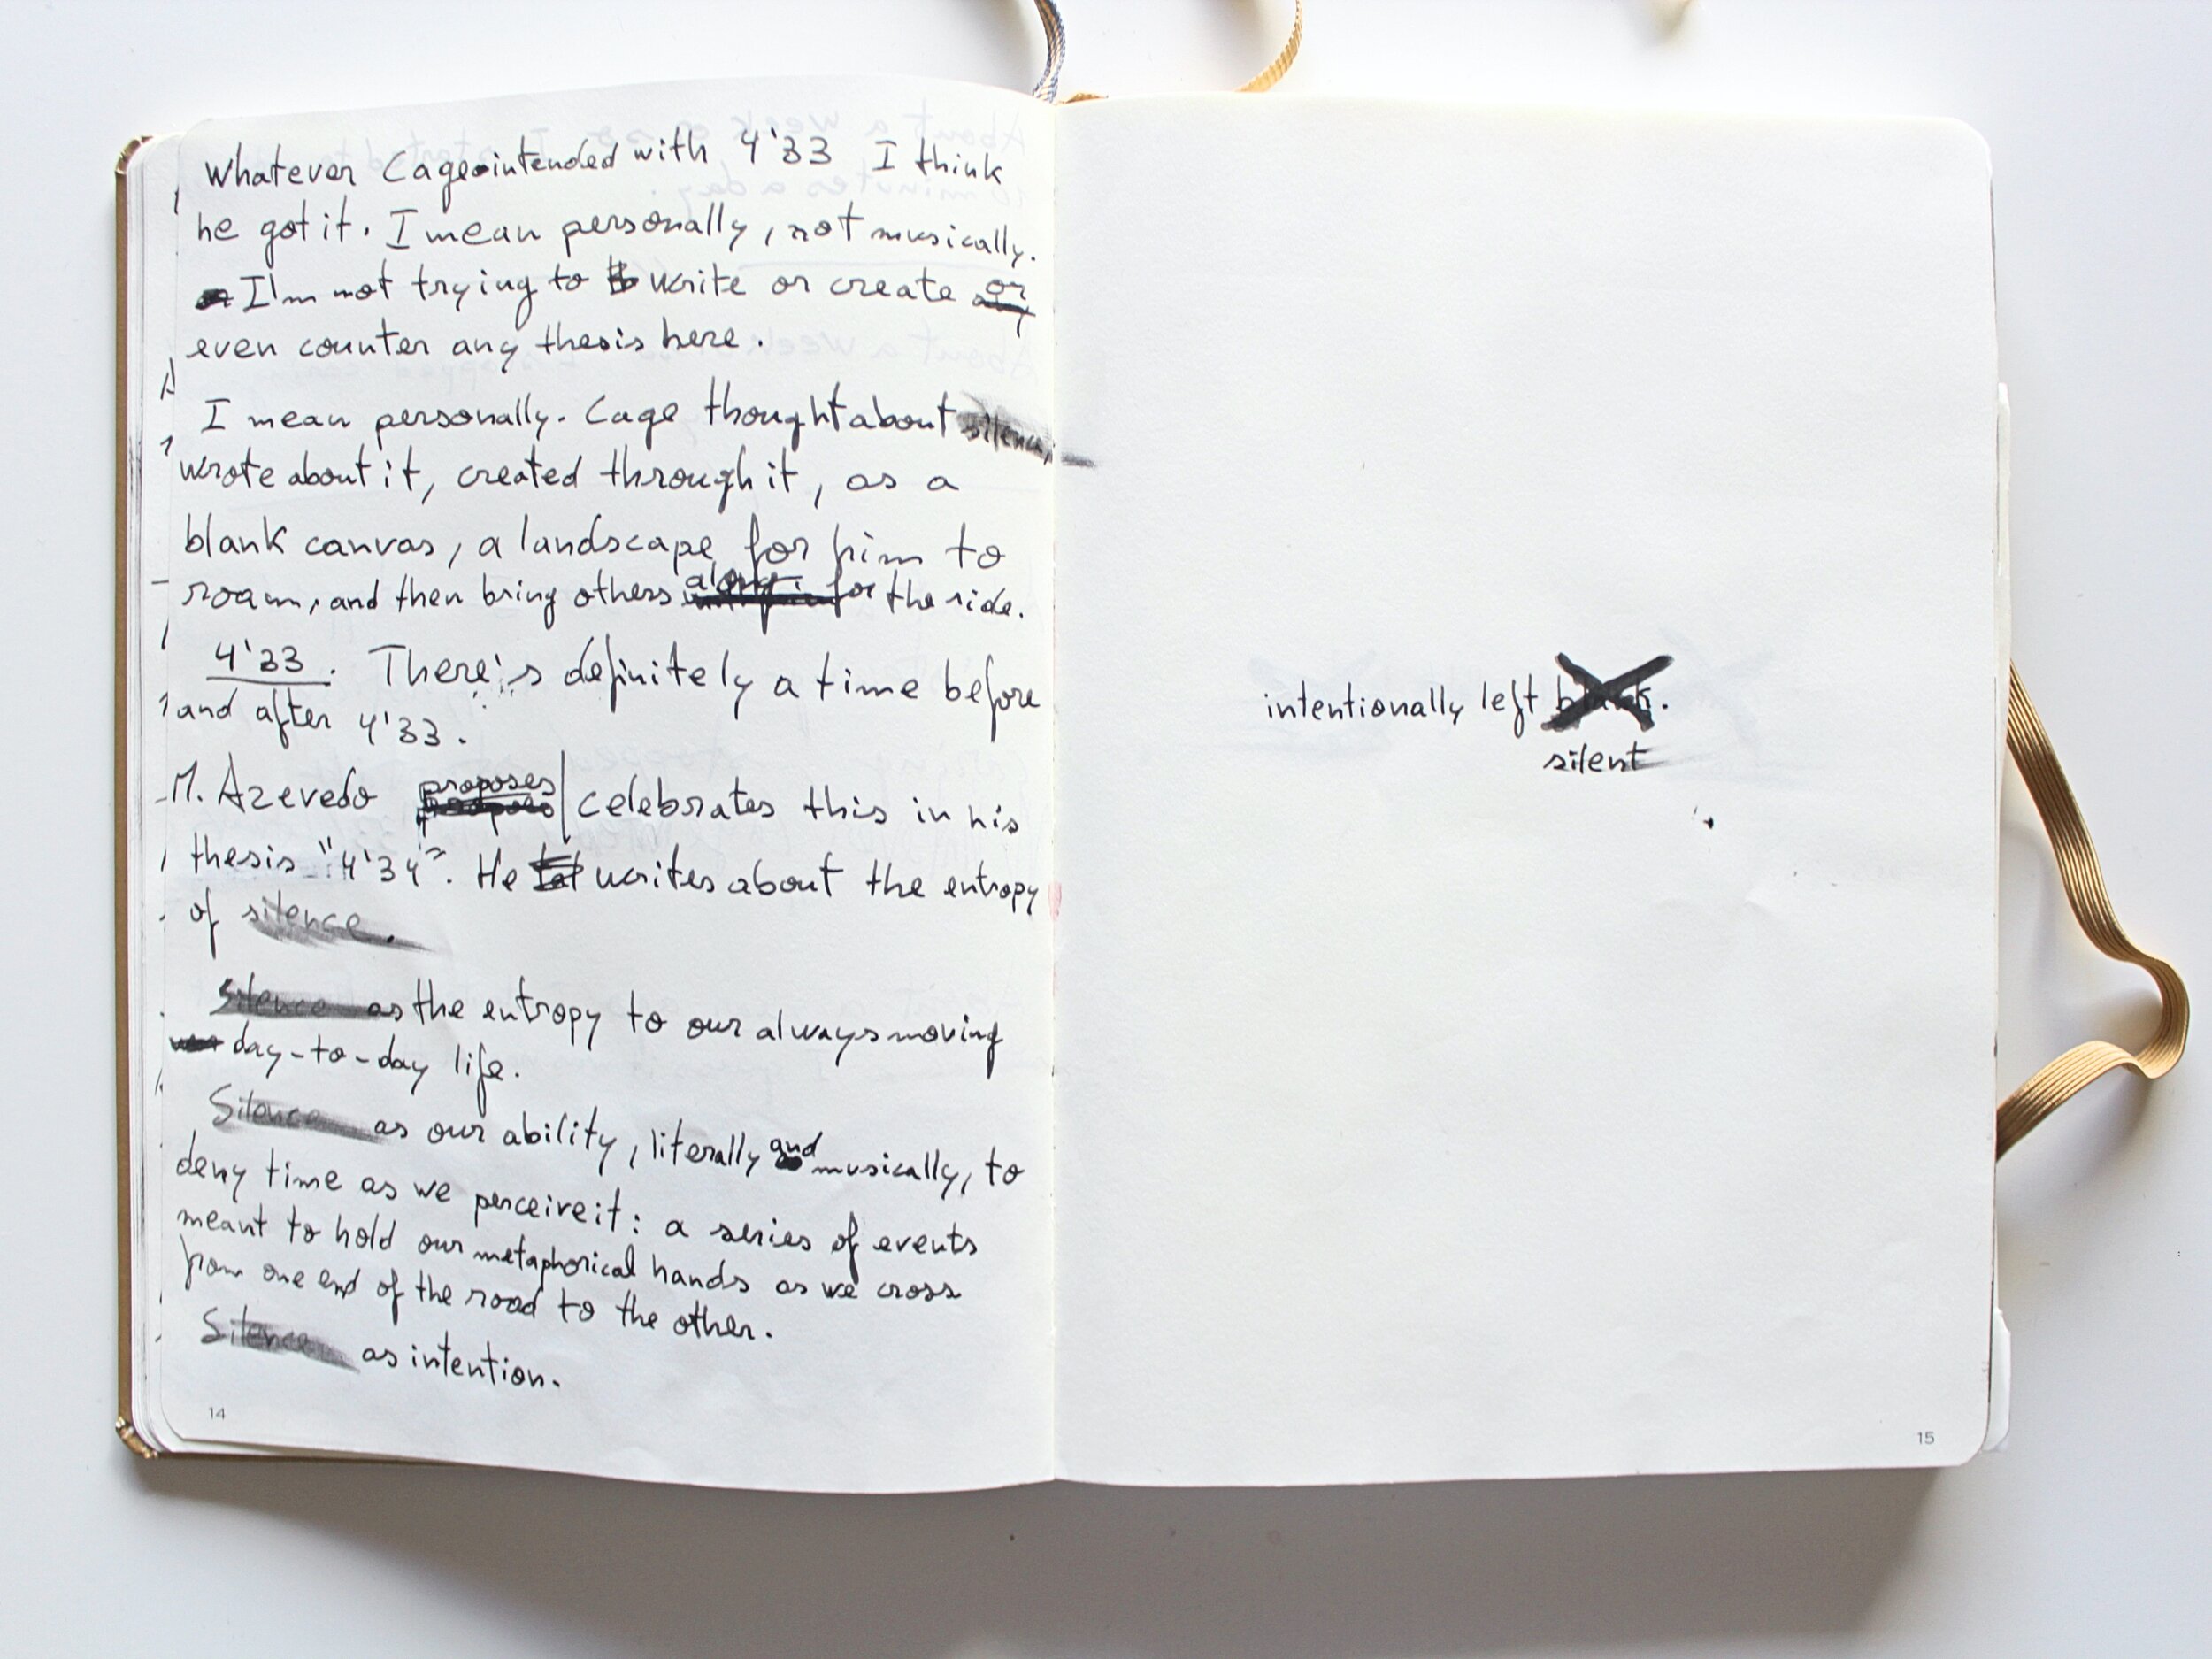 Whatever Cage intended with 4'33 I think
he got it. I mean personally, not musically.
I'm not trying to write or create or
even counter any thesis here.
I mean personally. Cage thought about silence,
wrote about it, created through it, as a
blank canvas, a landscape for him to
roam, and then bring others along for the ride.
4'33. There's definitely a time before
and after 4'33.
M. Azevedo proposes celebrates this in his
thesis "4'34". He writes about the entropy
of silence.
Silence as the entropy to our always moving
day-to-day life.
Silence as our ability, literally and musically, to
deny time as we perceive it: a series of events
meant to hold our metaphorical hands as we cross
from one end of the road to the other.
Silence as intention.
14
intentionally left blank.
silent
15